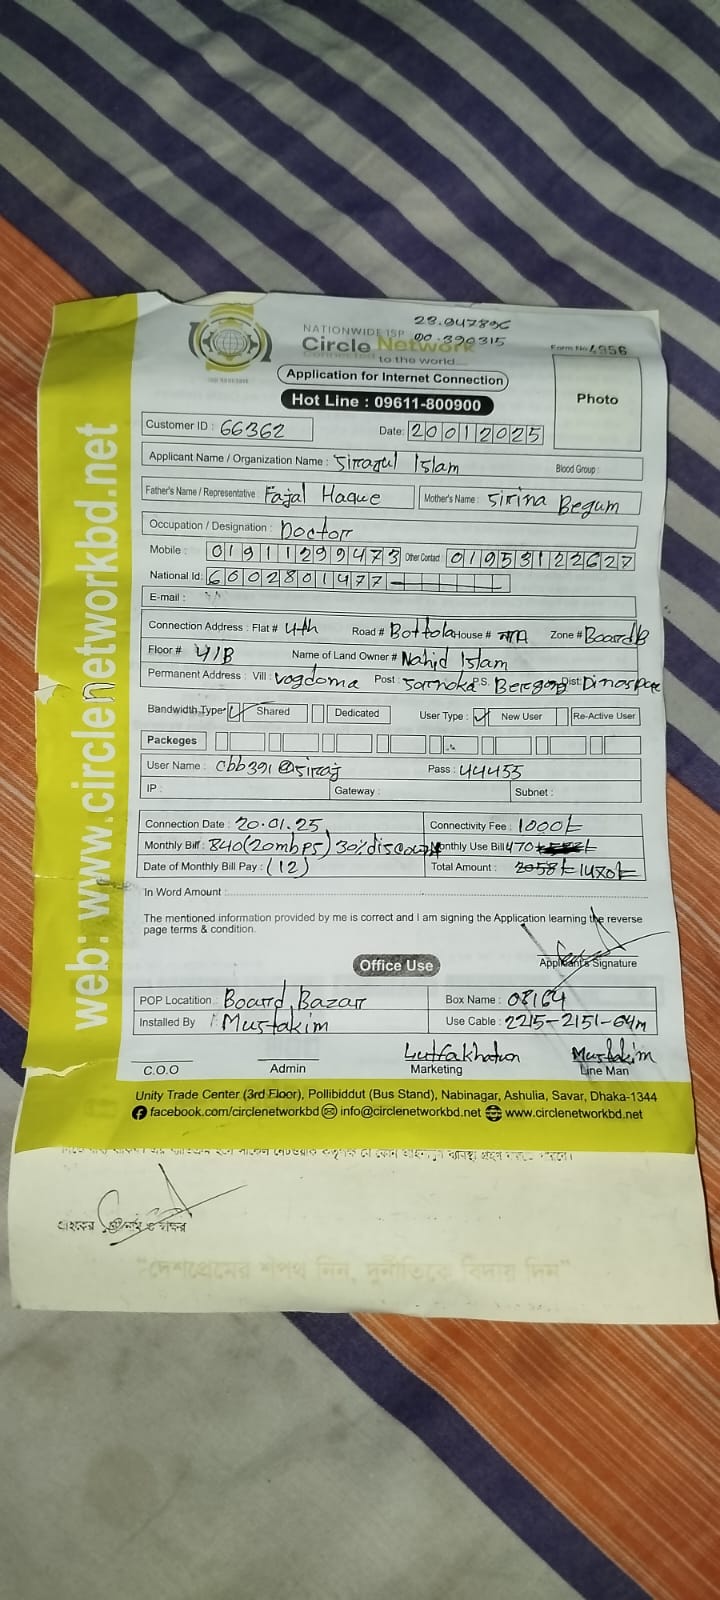 NATIONWIDE ISP
23.947896
90.390315
Circle Network
Connected to the world....
Form No 4956
Application for Internet Connection
Hot Line : 09611-800900
Photo
Customer ID : 66362
Date: 20012025
Applicant Name / Organization Name : Sirazul Islam Blood Group :
Father's Name / Representative : Fajal Haque Mother's Name : Sirina Begum
Occupation / Designation : Doctor
Mobile : 01911299473 Other Contact : 01953122627
National Id: 6002801477
E-mail :
Connection Address : Flat # 4th Road # Bottola House # N/A Zone # Board B
Floor # 4/B Name of Land Owner # Nahid Islam
Permanent Address : Vill : Vogdoma Post : P.S. Dist:
Bandwidth Type Shared Dedicated User Type : New User Re-Active User
Packeges
User Name : cbb391@siraj Pass : 44455
IP : Gateway : Subnet :
Connection Date : 20.01.25 Connectivity Fee : 1000/=
Monthly Bill : 840 (20mbps) 30% discount Monthly Use Bill 470
Date of Monthly Bill Pay : (12) Total Amount : 2058/= 1470/=
In Word Amount :
The mentioned information provided by me is correct and I am signing the Application learning the reverse
page terms & condition.
Applicant's Signature
Office Use
POP Locatition : Board Bazar Box Name : 08164
Installed By : Mustakim Use Cable : 2215-2151-64m
Lutfa khatun Mustakim
C.O.O Admin Marketing Line Man
Unity Trade Center (3rd Floor), Pollibiddut (Bus Stand), Nabinagar, Ashulia, Savar, Dhaka-1344
facebook.com/circlenetworkbd info@circlenetworkbd.net www.circlenetworkbd.net
web: www.circlenetworkbd.net
গ্রাহকের স্বাক্ষর
"দেশপ্রেমের শপথ নিন, দুর্নীতিকে বিদায় দিন"